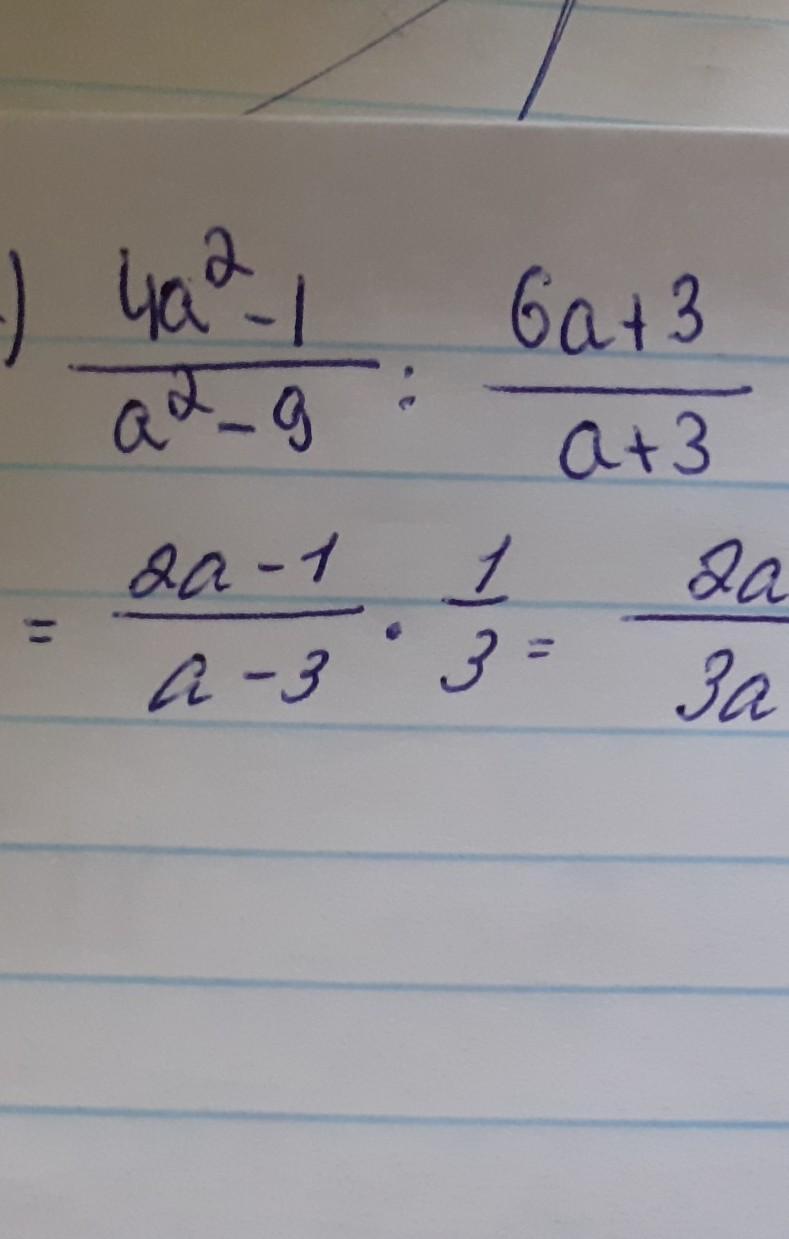 .) 4a²-1 / a²-9 : 6a+3 / a+3
= 2a-1 / a-3 · 1 / 3 = 2a / 3a